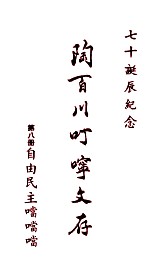 七十誕辰紀念
陶百川叮嚀文存
第八冊自由民主噹噹噹